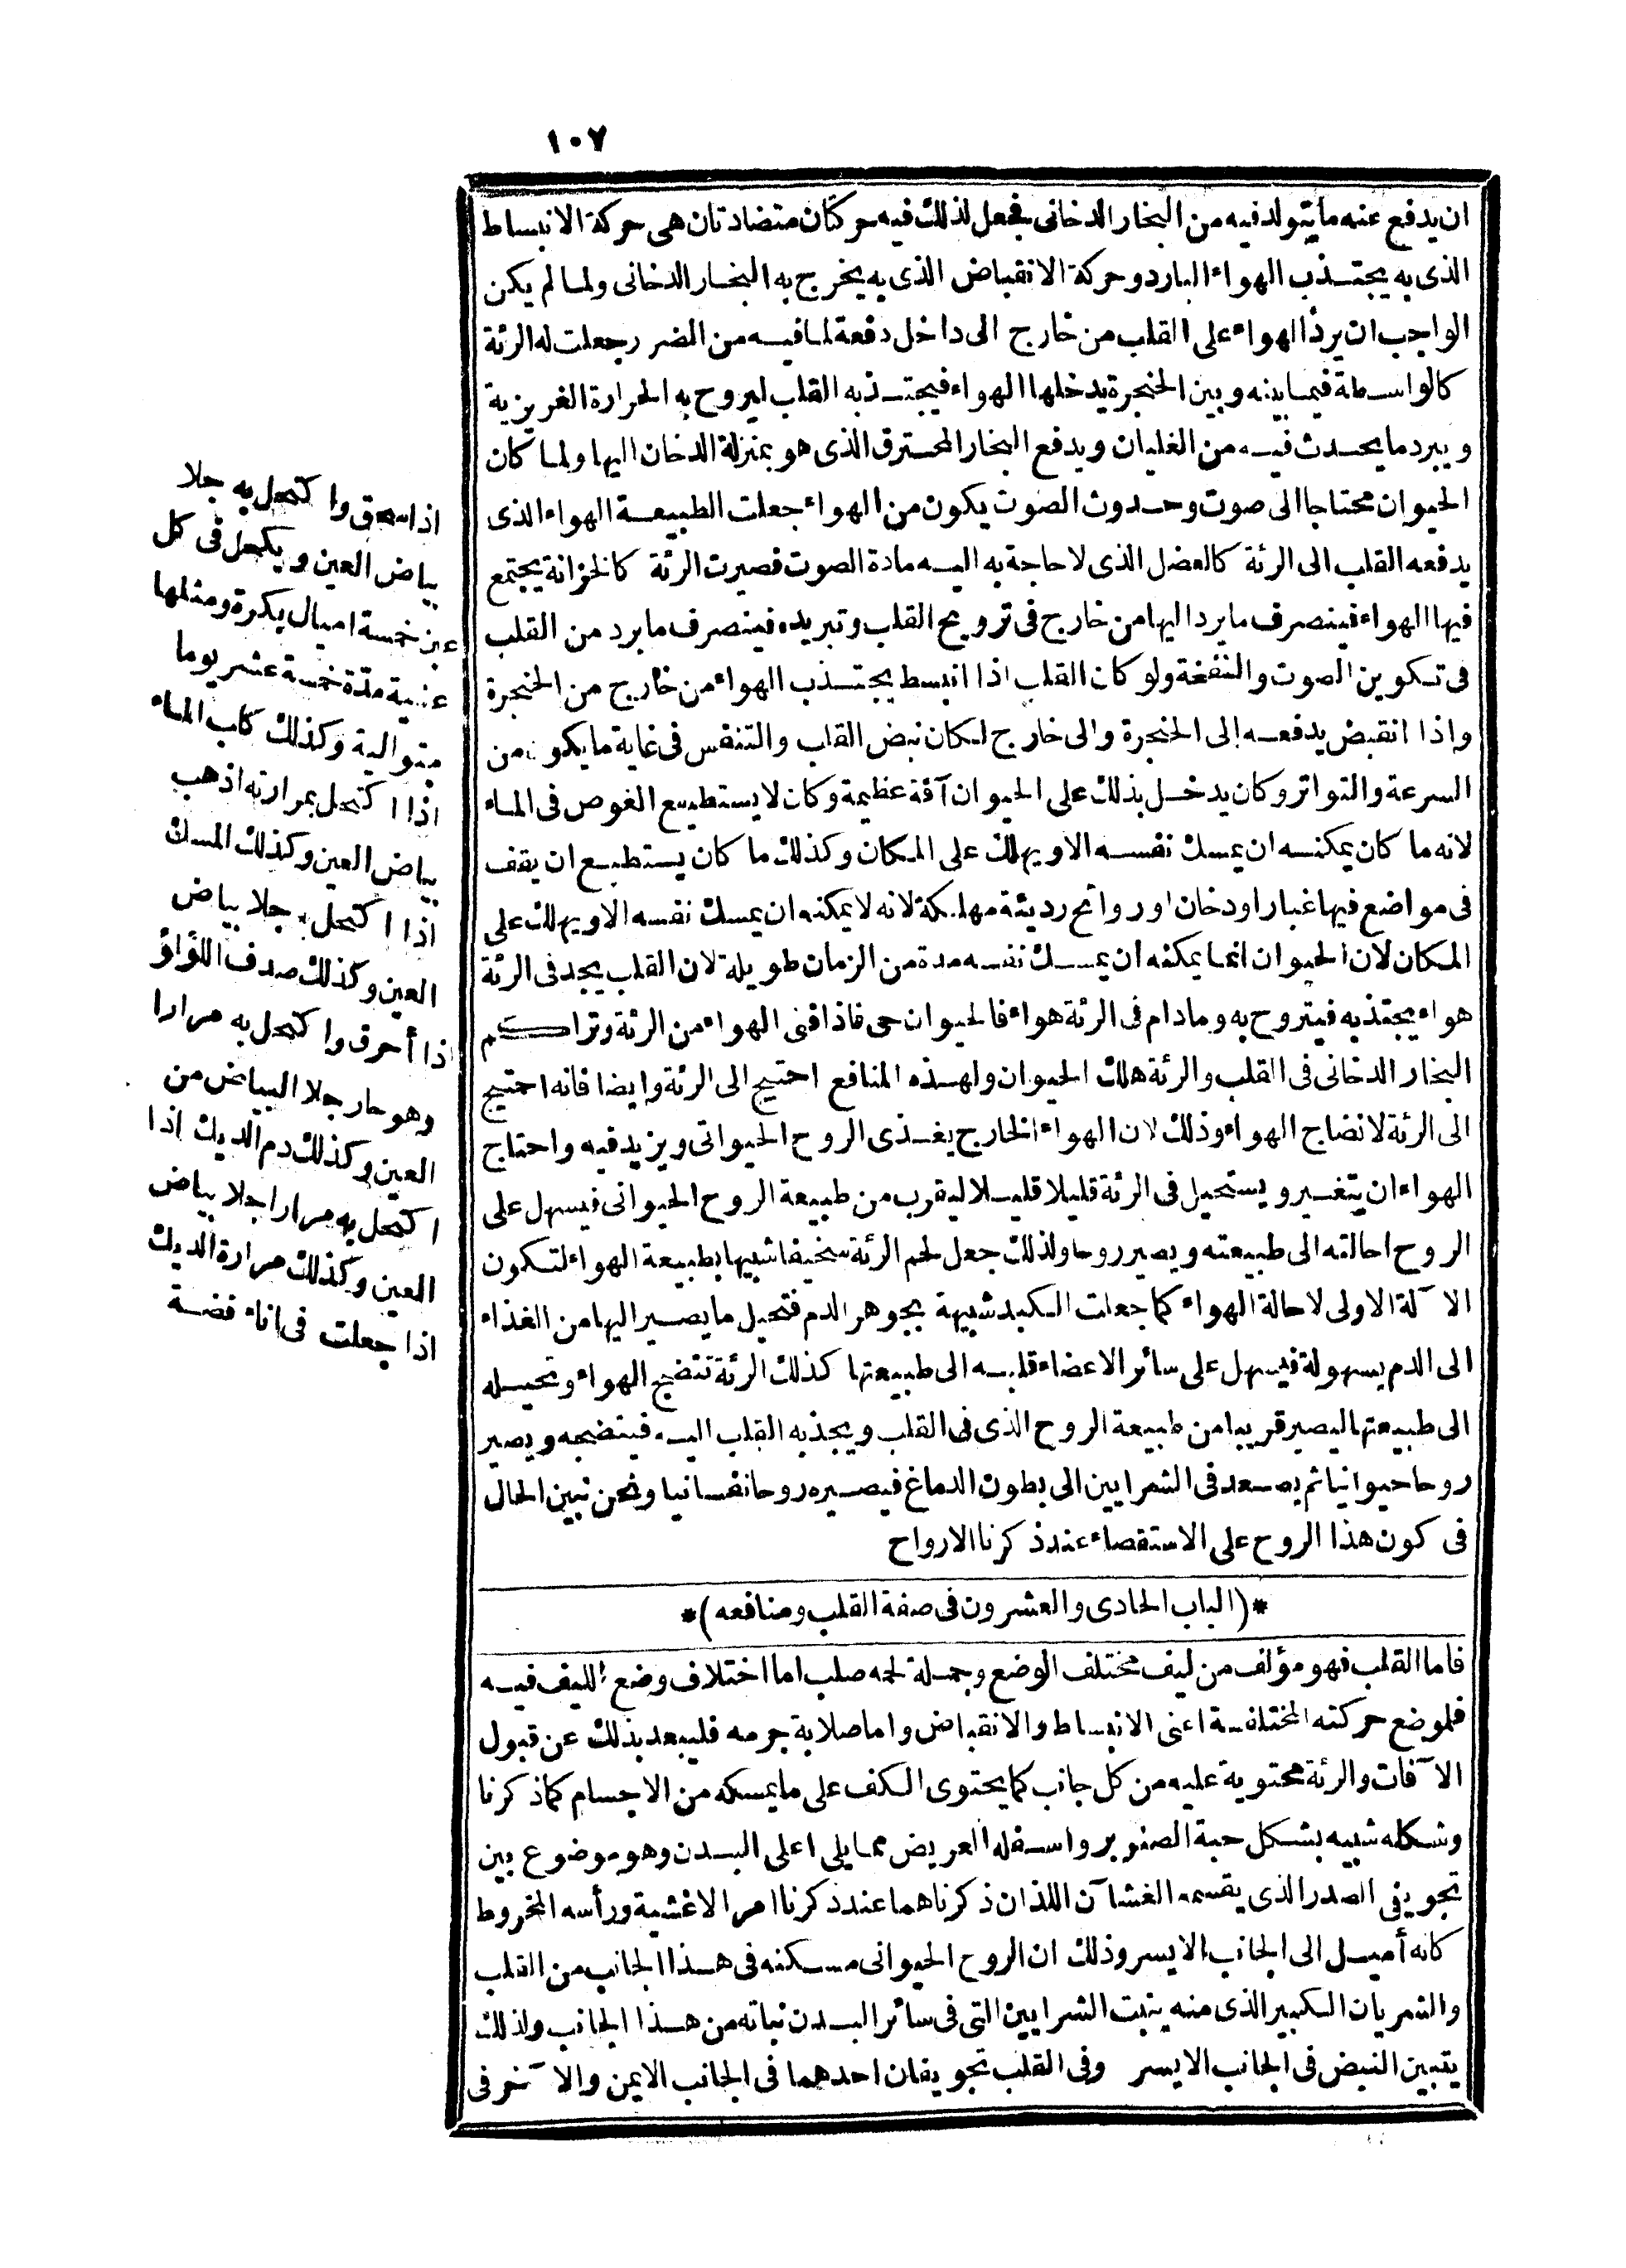 ١٠٧
ان يدفع عنه ما يتولد فيه من البخار الدخانى فجعل لذلك فيه حركتان متضادتان هى حركة الانبساط
الذى به يجتذب الهواء البارد وحركة الانقباض الذى به يخرج به البخار الدخانى ولما لم يكن
الواجب ان يرد الهواء على القلب من خارج الى داخل دفعة لما فيه من الضرر جعلت له الرئة
كالواسطة فيما بينه وبين الحنجرة يدخلها الهواء فيجتذبه القلب ليروح به الحرارة الغريزية
ويبرد ما يحدث فيه من الغليان ويدفع البخار المحترق الذى هو بمنزلة الدخان اليها ولما كان
الحيوان محتاجا الى صوت وحدوث الصوت يكون من الهواء جعلت الطبيعة الهواء الذى
يدفعه القلب الى الرئة كالفضل الذى لا حاجة به اليه مادة الصوت فصيرت الرئة كالخزانة يجتمع
فيها الهواء فينصرف ما يرد اليها من خارج فى ترويح القلب وتبريده فينصرف ما يرد من القلب
فى تكوين الصوت والنفخة ولو كان القلب اذا انبسط يجتذب الهواء من خارج من الحنجرة
واذا انقبض يدفعه الى الحنجرة والى خارج لكان نبض القلب والتنفس فى غاية ما يكون من
السرعة والتواتر وكان يدخل بذلك على الحيوان آفة عظيمة وكان لا يستطيع الغوص فى الماء
لانه ما كان يمكنه ان يمسك نفسه الا ويهلك على المكان وكذلك ما كان يستطيع ان يقف
فى مواضع فيها غبار او دخان او روائح رديئة مهلكة لانه لا يمكنه ان يمسك نفسه الا ويهلك على
المكان لان الحيوان انما يمكنه ان يمسك نفسه مدة من الزمان طويلة لان القلب يجد فى الرئة
هواء يجتذبه فيتروح به وما دام فى الرئة هواء فالحيوان حى فاذا فنى الهواء من الرئة وتراكم
البخار الدخانى فى القلب والرئة هلك الحيوان ولهذه المنافع احتيج الى الرئة وايضا فانه احتيج
الى الرئة لانضاج الهواء وذلك لان الهواء الخارج يغذى الروح الحيوانى ويزيد فيه واحتاج
الهواء ان يتغير ويستحيل فى الرئة قليلا قليلا ليقرب من طبيعة الروح الحيوانى فيسهل على
الروح احالته الى طبيعته ويصير روحا ولذلك جعل لحم الرئة سخيفا شبيها بطبيعة الهواء لتكون
الآلة الاولى لاحالة الهواء كما جعلت الكبد شبيهة بجوهر الدم فتحيل ما يصير اليها من الغذاء
الى الدم بسهولة فيسهل على سائر الاعضاء قلبه الى طبيعتها كذلك الرئة تنضج الهواء وتحيله
الى طبيعتها ليصير قريبا من طبيعة الروح الذى فى القلب ويجذبه القلب اليه فينضجه ويصير
روحا حيوانيا ثم يصعد فى الشرايين الى بطون الدماغ فيصيره روحا نفسانيا ونحن نبين الحال
فى كون هذا الروح على الاستقصاء عند ذكرنا الارواح
*(الباب الحادى والعشرون فى صفة القلب ومنافعه)*
فاما القلب فهو مؤلف من ليف مختلف الوضع وجملة لحمه صلب اما اختلاف وضع الليف فيه
فلموضع حركته المختلفة اعنى الانبساط والانقباض واما صلابة جرمه فليبعد بذلك عن قبول
الآفات والرئة محتوية عليه من كل جانب كما يحتوى الكف على ما يمسكه من الاجسام كما ذكرنا
وشكله شبيه بشكل حبة الصنوبر واسفله العريض مما يلى اعلى البدن وهو موضوع بين
تجويفى الصدر الذى يقسمه الغشاآن اللذان ذكرناهما عند ذكرنا امر الاغشية ورأسه المخروط
كانه أميل الى الجانب الايسر وذلك ان الروح الحيوانى مسكنه فى هذا الجانب من القلب
والشريان الكبير الذى منه ينبت الشرايين التى فى سائر البدن نباته من هذا الجانب ولذلك
يتبين النبض فى الجانب الايسر وفى القلب تجويفان احدهما فى الجانب الايمن والآخر فى
اذا سحق واكتحل به جلا
بياض العين ويكحل فى كل
عين خمسة اميال بكرة ومثلها
عشية مدّة خمسة عشر يوما
متوالية وكذلك كلب الماء
اذا اكتحل بمرارته اذهب
بياض العين وكذلك المسك
اذا اكتحل به جلا بياض
العين وكذلك صدف اللؤلؤ
اذا أحرق واكتحل به مرارا
وهو حار جلا البياض من
العين وكذلك دم الديك اذا
اكتحل به مرارا جلا بياض
العين وكذلك مرارة الديك
اذا جعلت فى اناء فضة